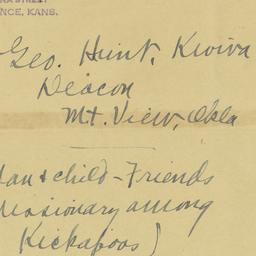 NCE, KANS.
Geo. Hunt, Kiowa
Deacon
Mt. View, Okla
Man & child - Friends
Missionary among
Kickapoos)